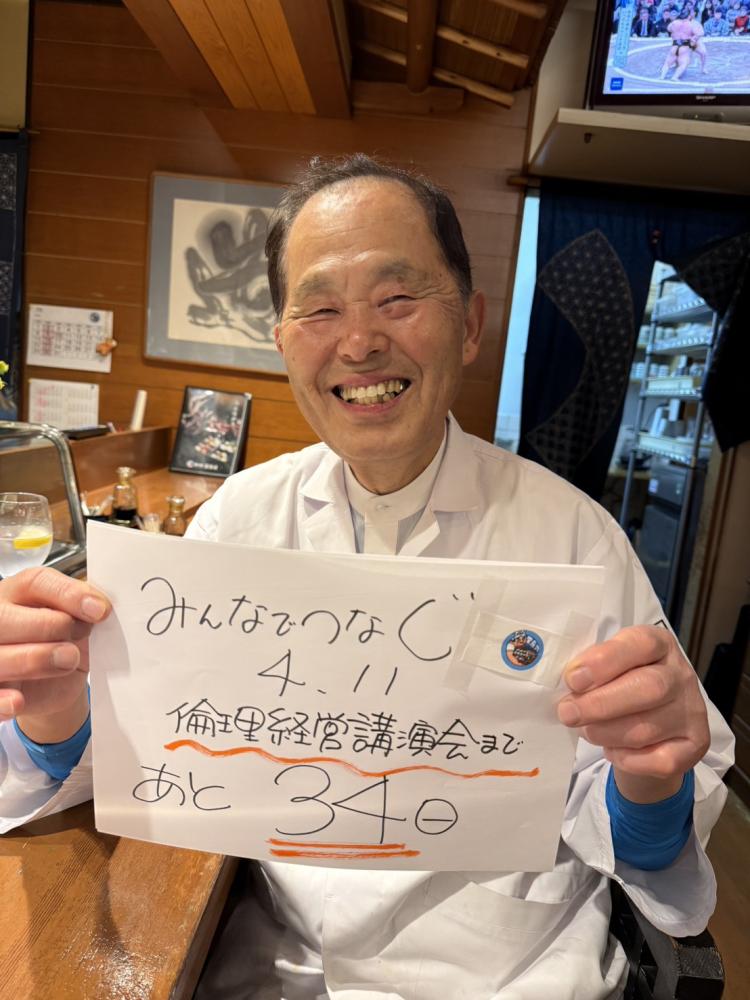 みんなでつなぐ
4.11
倫理経営講演会まで
あと 34日
SHARP